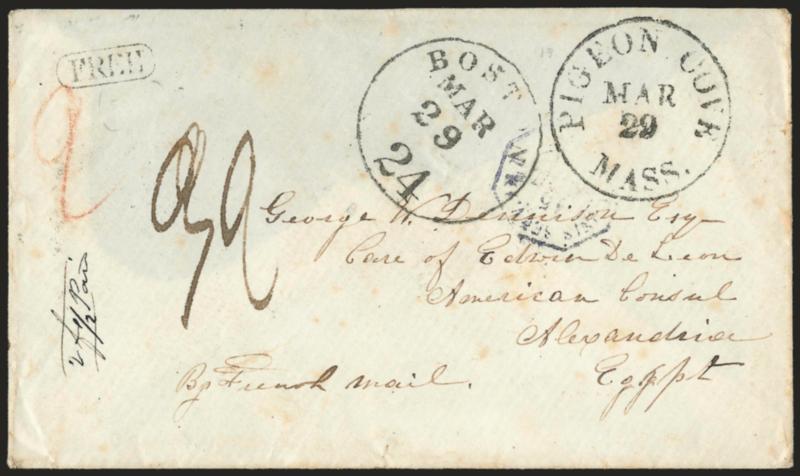 FREE
BOST
MAR
29
24
PIGEON COVE
MAR
29
MASS.
2
George W. Dennison Esq
Care of Edwin De Leon
American Consul
Alexandria
Egypt
By French mail.